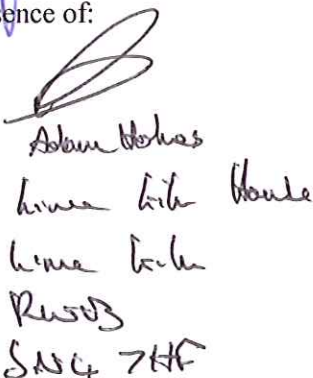 sence of:
Adam
Lime Kiln House
Lime Kiln
SN4 7HF